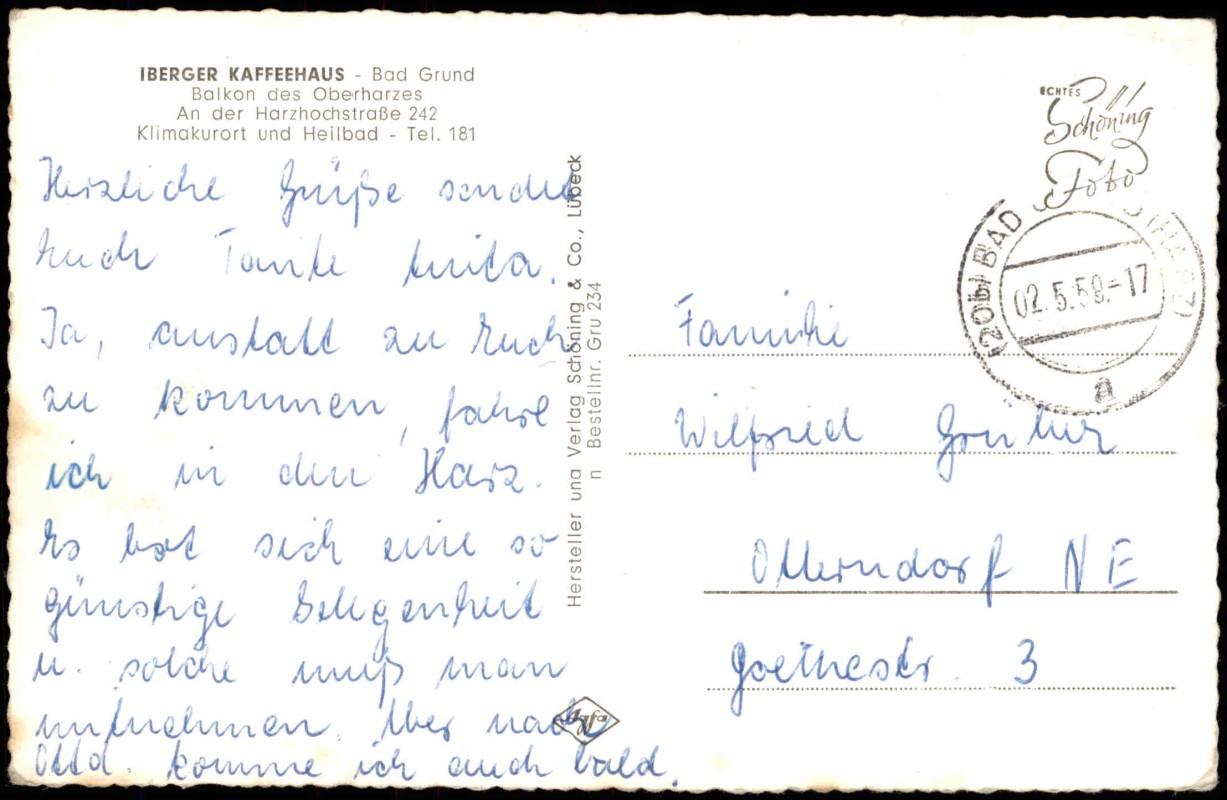 IBERGER KAFFEEHAUS - Bad Grund
Balkon des Oberharzes
An der Harzhochstraße 242
Klimakurort und Heilbad - Tel. 181
Herzliche Grüße sendet
Euch Tante Anita.
Ja, anstatt zu Euch
zu kommen, fahre
ich in den Harz.
Es bot sich eine so
günstige Gelegenheit
u. solche muß man
mitnehmen. Aber nach
Ottd. komme ich auch bald.
Hersteller und Verlag Schöning & Co., Lübeck
n Bestellnr. Gru 234
Agfa
ECHTES
Schöning
Foto
(20b) BAD (HARZ)
02.5.59.-17
a
Familie
Wilfried
Otterndorf NE
Goethestr. 3